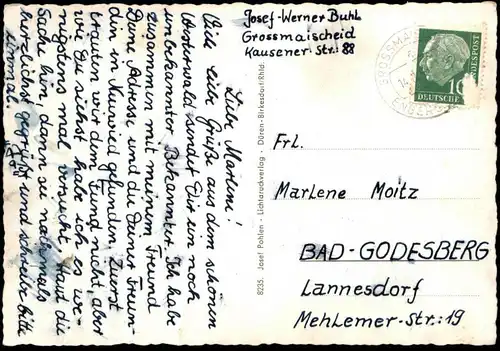 Liebe Marlene!
Viele liebe Grüße aus dem schönen
Westerwald sendet Dir ein noch
unbekannter Bekannter. Ich habe
zusammen mit meinem Freund
Deine Adresse und die Deiner Freun-
din in Neuwied gefunden. Zuerst
trauten wir dem Fund nicht aber
wie Du siehst habe ich es we-
nigstens mal versucht. Haut die
Sache hin, dann sei nochmals
herzlichst gegrüßt und schreibe bitte
einmal.
Josef-Werner Buhl
Grossmaischeid
Kausener-Str.: 88
GROSSMAI
DEUTSCHE
BUNDESPOST
10
8235. Josef Pohlen - Lichtdruckverlag - Düren-Birkesdorf/Rhld.
Frl.
Marlene Moitz
BAD-GODESBERG
Lannesdorf
Mehlemer-Str.: 19